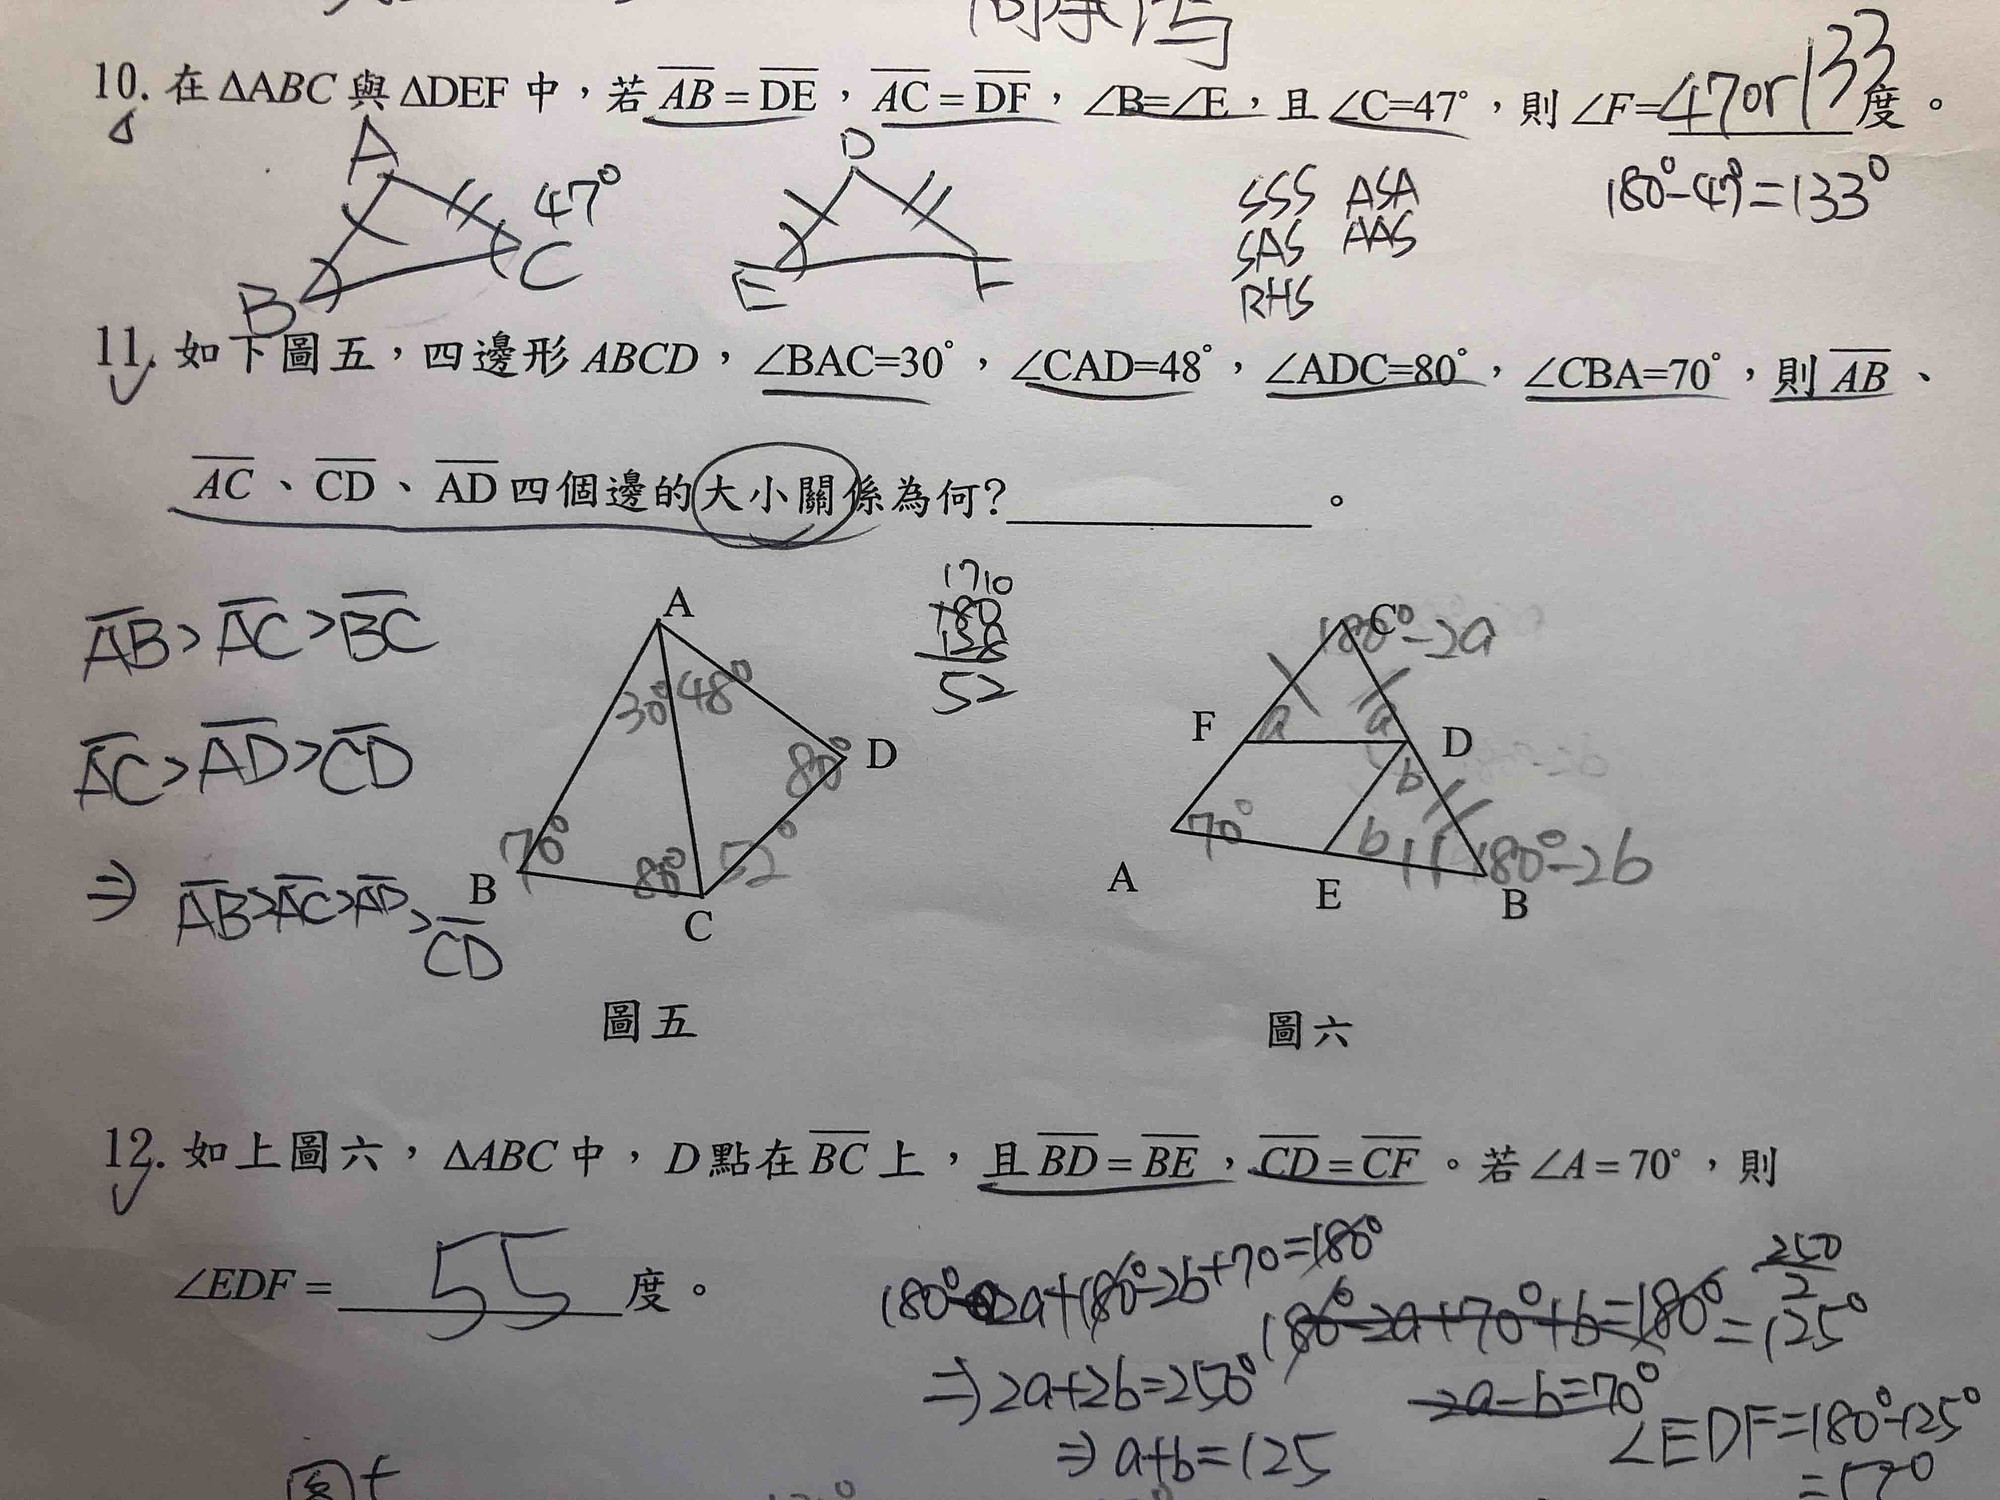 10. 在 ΔABC 與 ΔDEF 中，若 AB = DE，AC = DF，∠B=∠E，且 ∠C=47°，則 ∠F= 47or133 度。
A
47°
B
C
D
E
F
SSS ASA
SAS AAS
RHS
180°-47°=133°
11. 如下圖五，四邊形 ABCD，∠BAC=30°，∠CAD=48°，∠ADC=80°，∠CBA=70°，則 AB、
AC、CD、AD 四個邊的大小關係為何?____________。
AB>AC>BC
AC>AD>CD
⇒ AB>AC>AD>CD
A
30° 48°
80° D
B 70°
80° 52°
C
圖五
1710
180
128
52
C 180°-2a
F a a D
b
70° b 180°-2b
A E B
圖六
12. 如上圖六，ΔABC 中，D點在 BC 上，且 BD = BE，CD = CF。若 ∠A = 70°，則
∠EDF = 55 度。
180°-2a+180°-2b+70=180°
⇒2a+2b=250°
⇒a+b=125
180°-2a+70°+b=180°
2a-b=70°
250
2
=125°
∠EDF=180°-125°